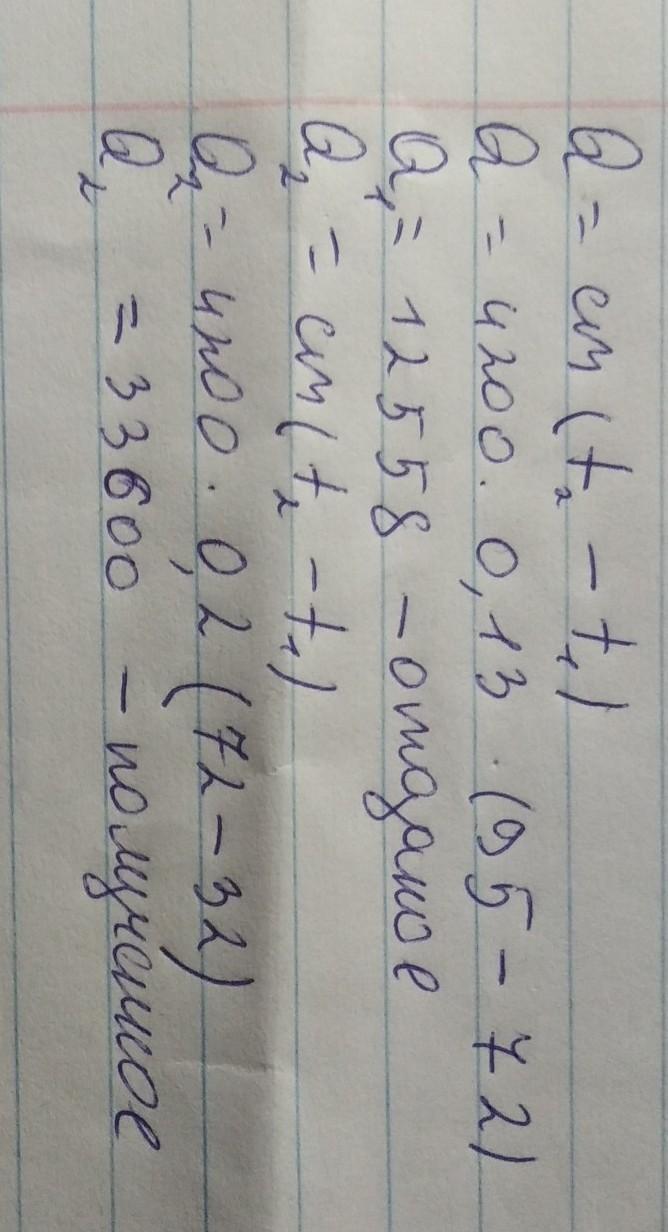 Q = cm(t₂ - t₁)
Q = 4200 · 0,13 · (95 - 72)
Q₁ = 12558 - отданое
Q₂ = cm(t₂ - t₁)
Q₂ = 4200 · 0,2 (72 - 32)
Q₂ = 33600 - полученное